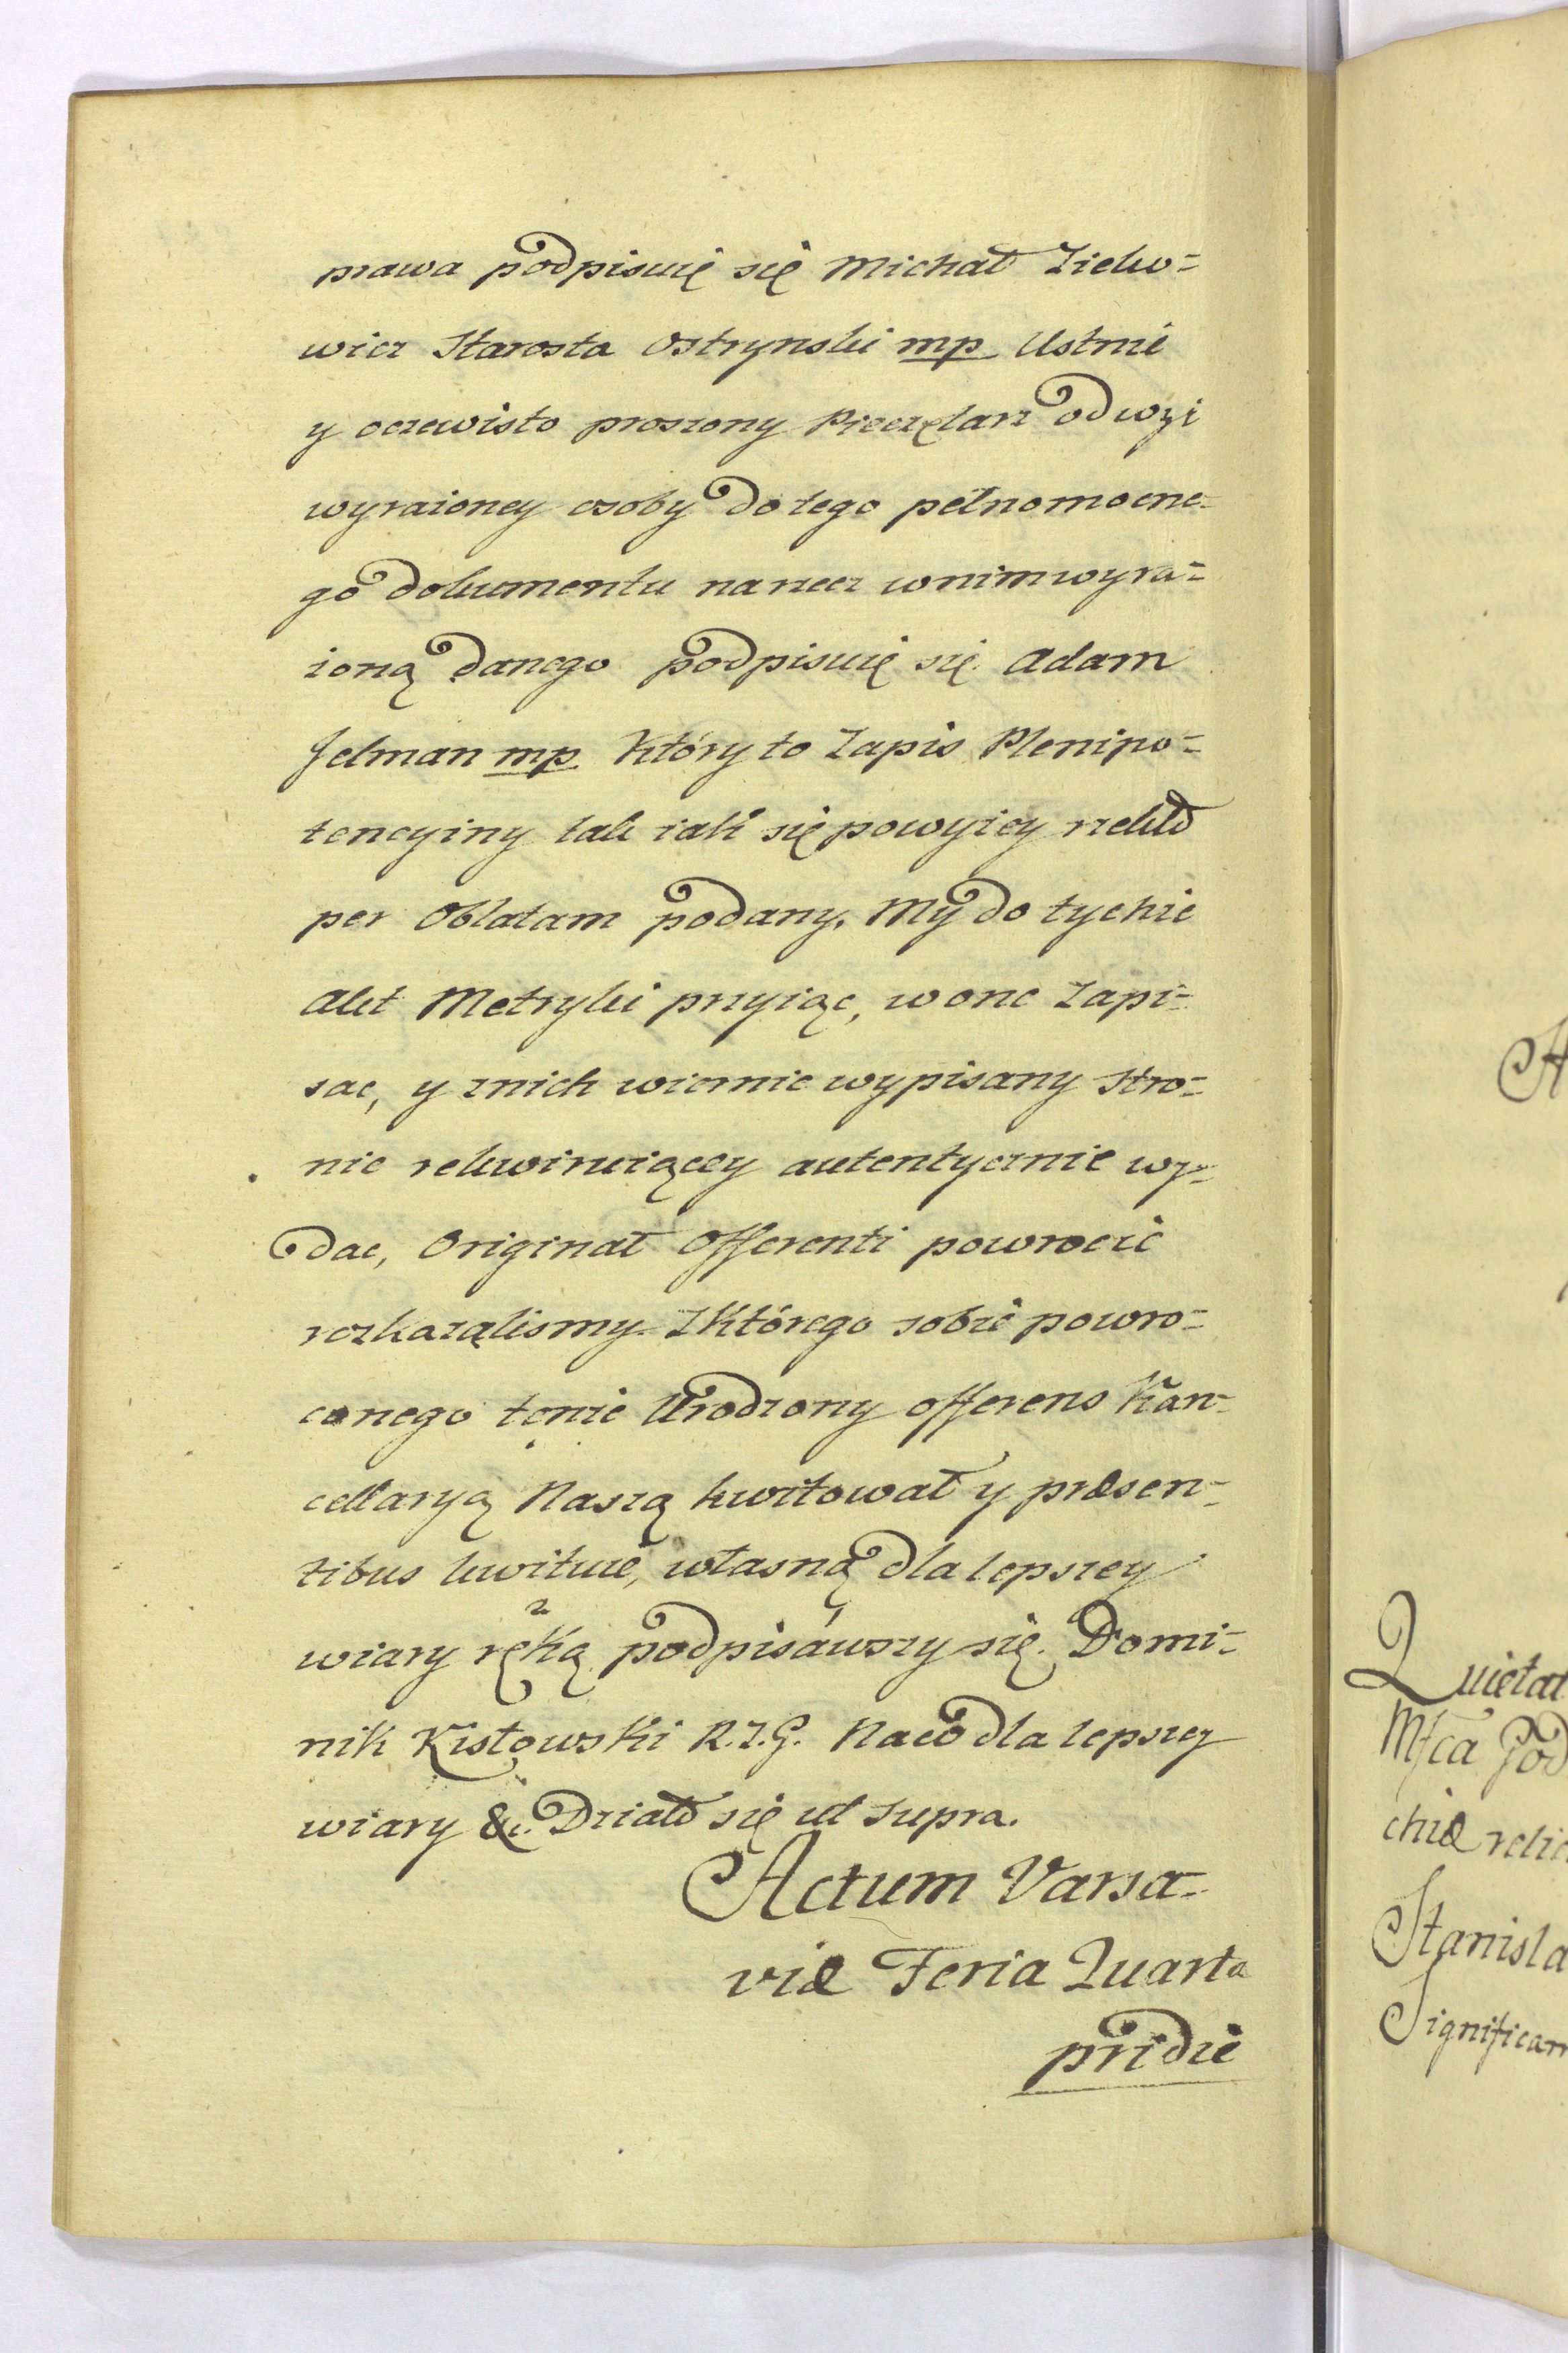 prawa podpisuię się Michał Zieko=
wicz Starosta Ostrynski mp Ustnie
y oczewisto proszony Pieczętarz od wyż
wyrażoney osoby do tego pełnomocne-
go dokumentu na rzecz w nim wyra=
żoną danego podpisuię się Adam
Jelman mp Który to Zapis Plenipo=
tencyiny tak iak się powyżey rzekło
per Oblatam podany, My do tychże
Akt Metryki przyiąc, w one Zapi=
sac, y z nich wiernie wypisany Stro=
nie rekwiruiącey autentycznie wy=
dac, Originał Offerenti powrocić
rozkazalismy. Z Którego sobie powro=
conego tenże Urodzony offerens Kan=
cellaryą Naszą kwitował y præsen=
tibus kwituie, własną dla lepszey
wiary ręką podpisawszy się. Domi=
nik Kisłowski R.Z.G. Na co dla lepszey
wiary &c. Działo się ut supra.
Actum Varsa=
viæ Feria Quarta
pridie
Quietat
Mfca
chiæ relic
Stanisla
Significam